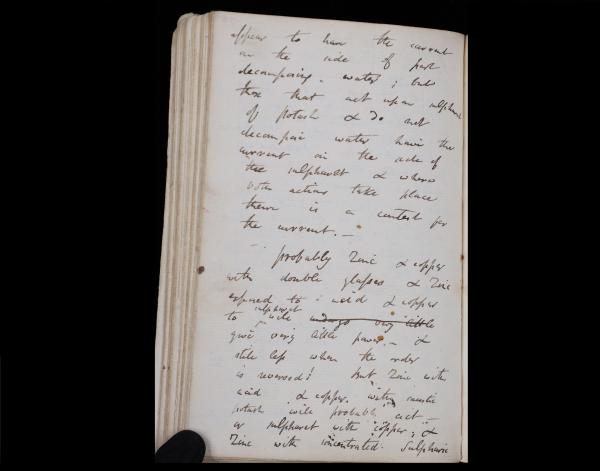 appear to have the current
on the side of part
decomposing water; but
those that act upon sulphuret
of Potash & do not
decompose water have the
current on the side of
the sulphuret & where
both actions take place
there is a contest for
the current. —
— Probably Zinc & copper
with double glasses & Zinc
exposed to acid & copper
to sulphuret will undergo very little
give very little power. — &
still less when the order
is reversed! But Zinc with
acid & copper with caustic
potash will probably act —
or sulphuret with copper; &
Zinc with concentrated Sulphuric